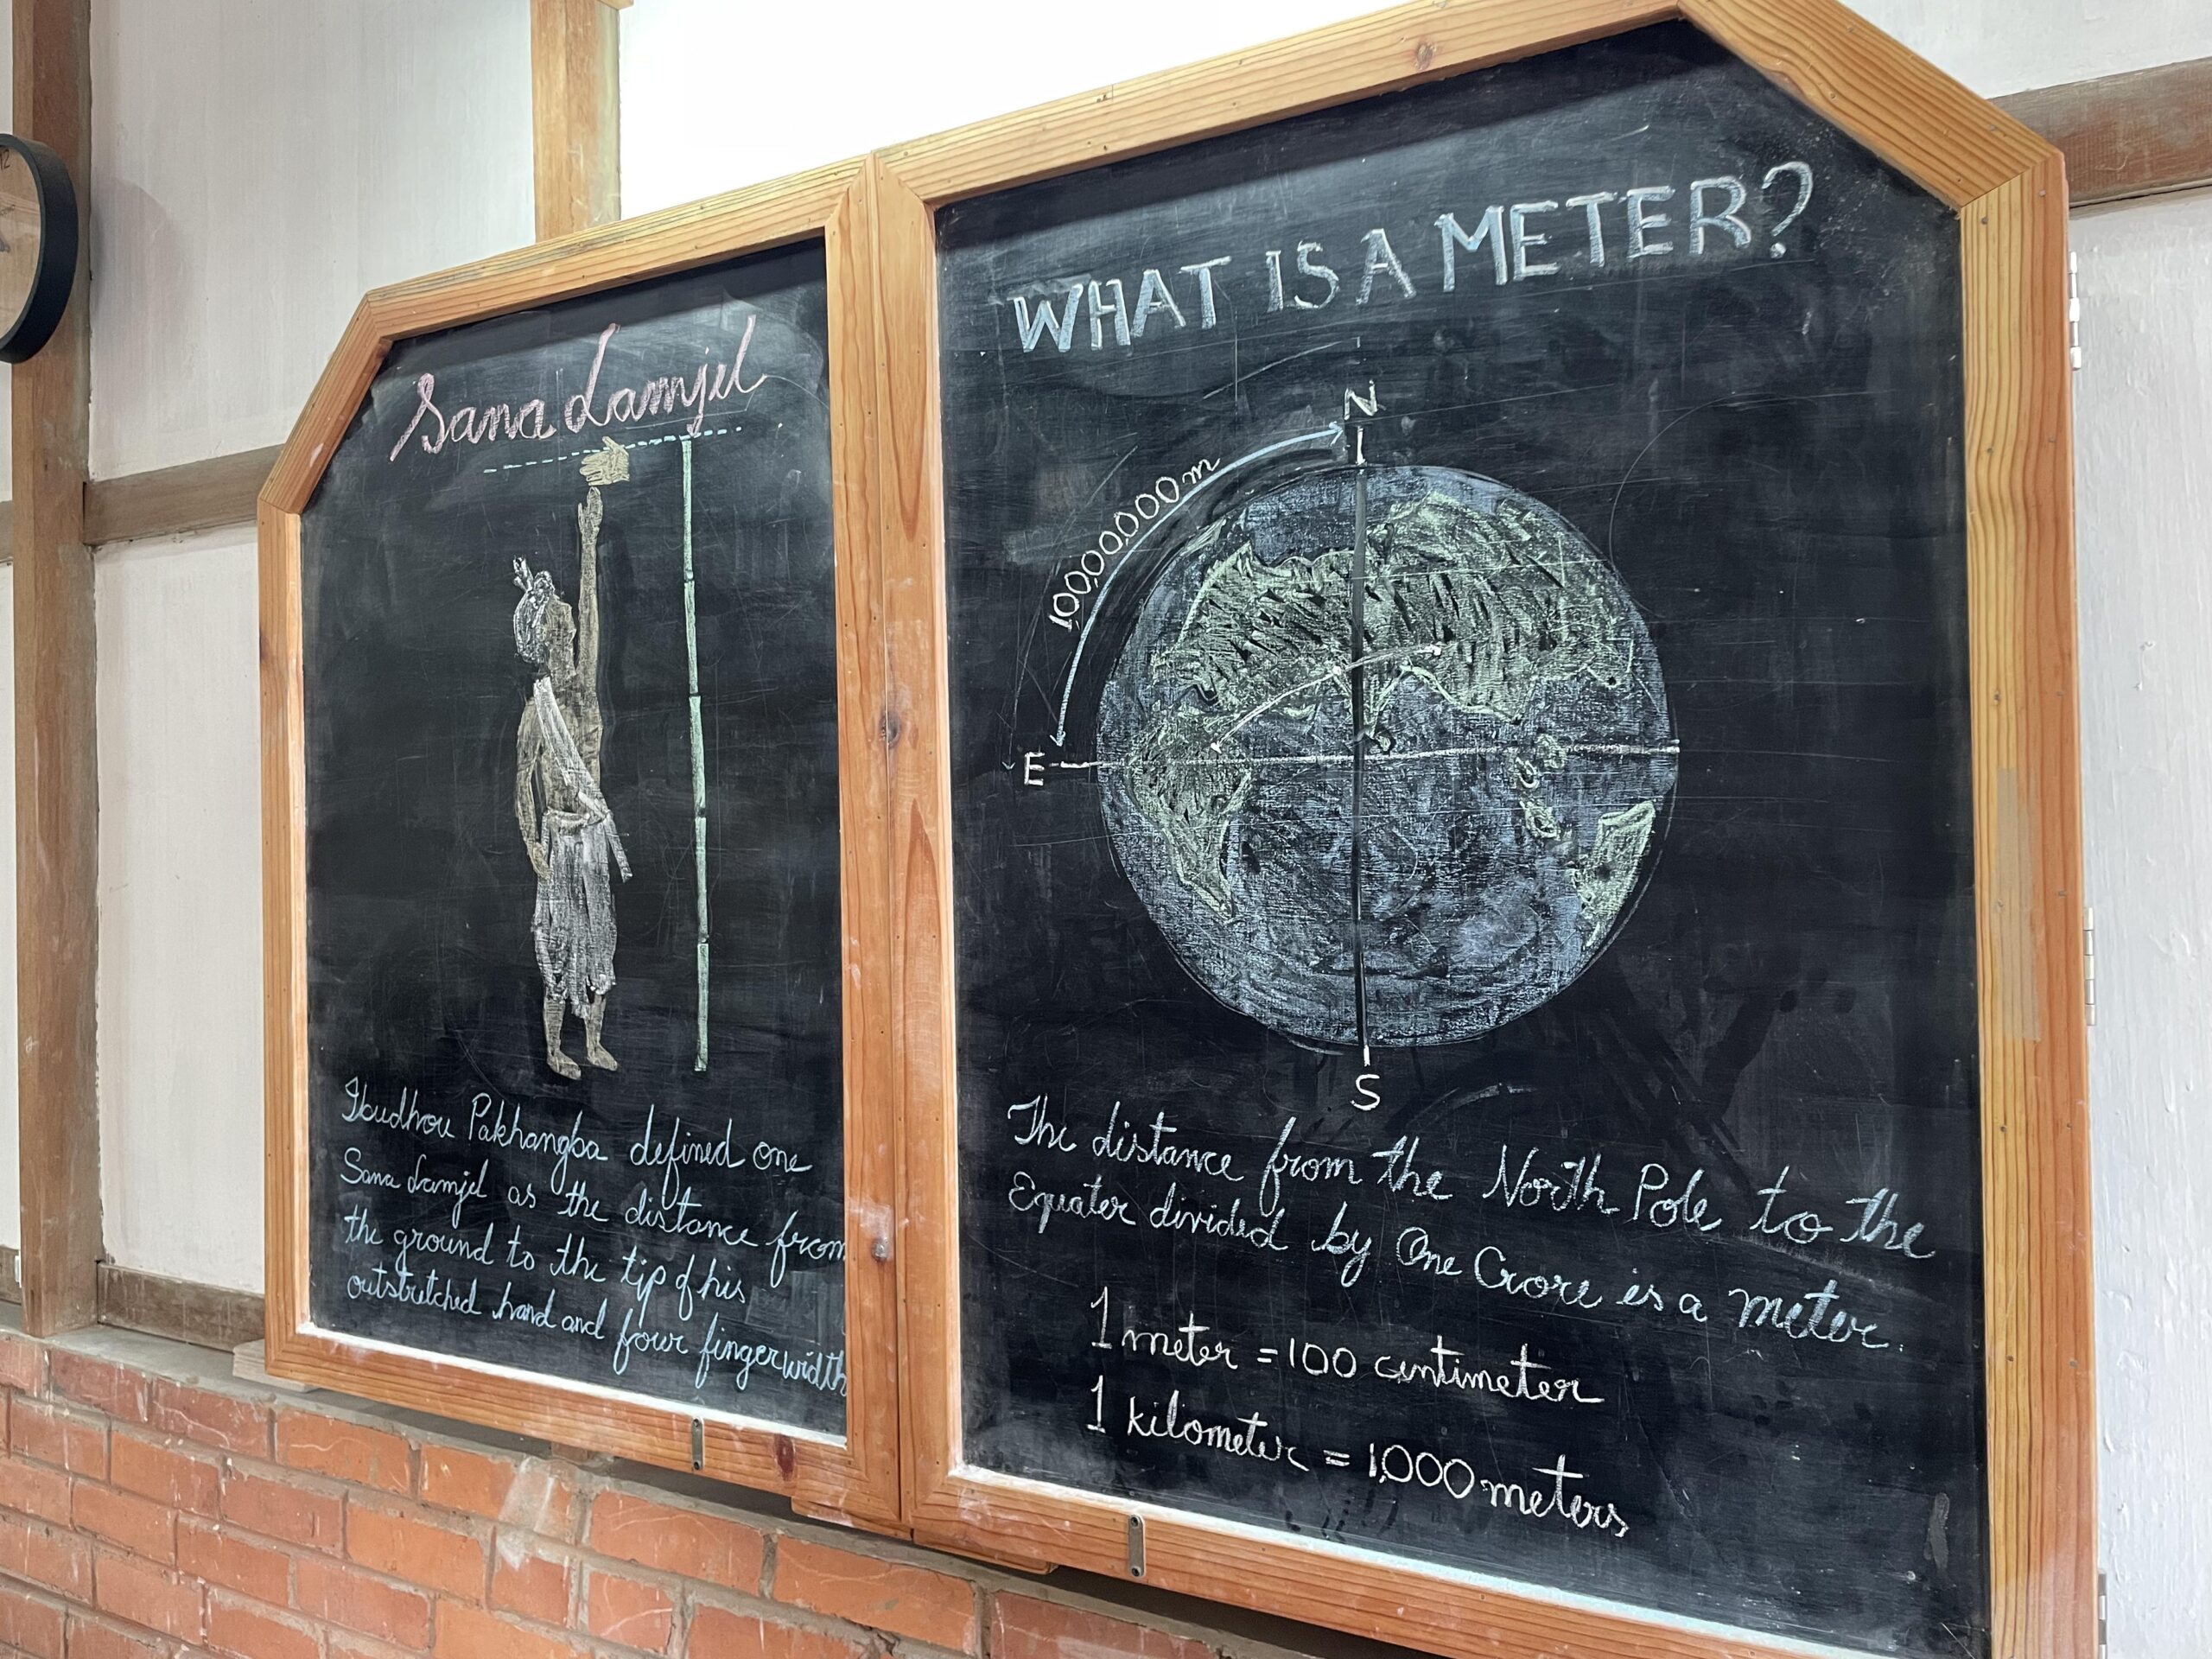 Sana Lamjel
Ibudhou Pakhangba defined one
Sana Lamjel as the distance from
the ground to the tip of his
outstretched hand and four finger width
WHAT IS A METER?
N
1,00,00,000 m
E
S
The distance from the North Pole to the
Equater divided by One Crore is a meter.
1 meter = 100 centimeter
1 kilometer = 1,000 meters
12